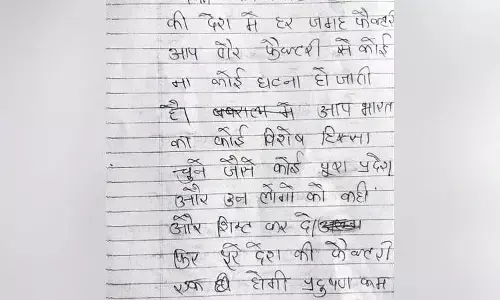 की देश मे हर जगह फैक्टरी
आप और फैक्टरी से कोई
ना कोई घटना हो जाती
है। में आप भारत
का कोई विशेष हिस्सा
चुने जैसे कोई पूरा प्रदेश
और उन लोगो को कही
और शिफ्ट कर दे।
फिर पूरे देश की फैक्टरी
एक ही होगी प्रदुषण कम